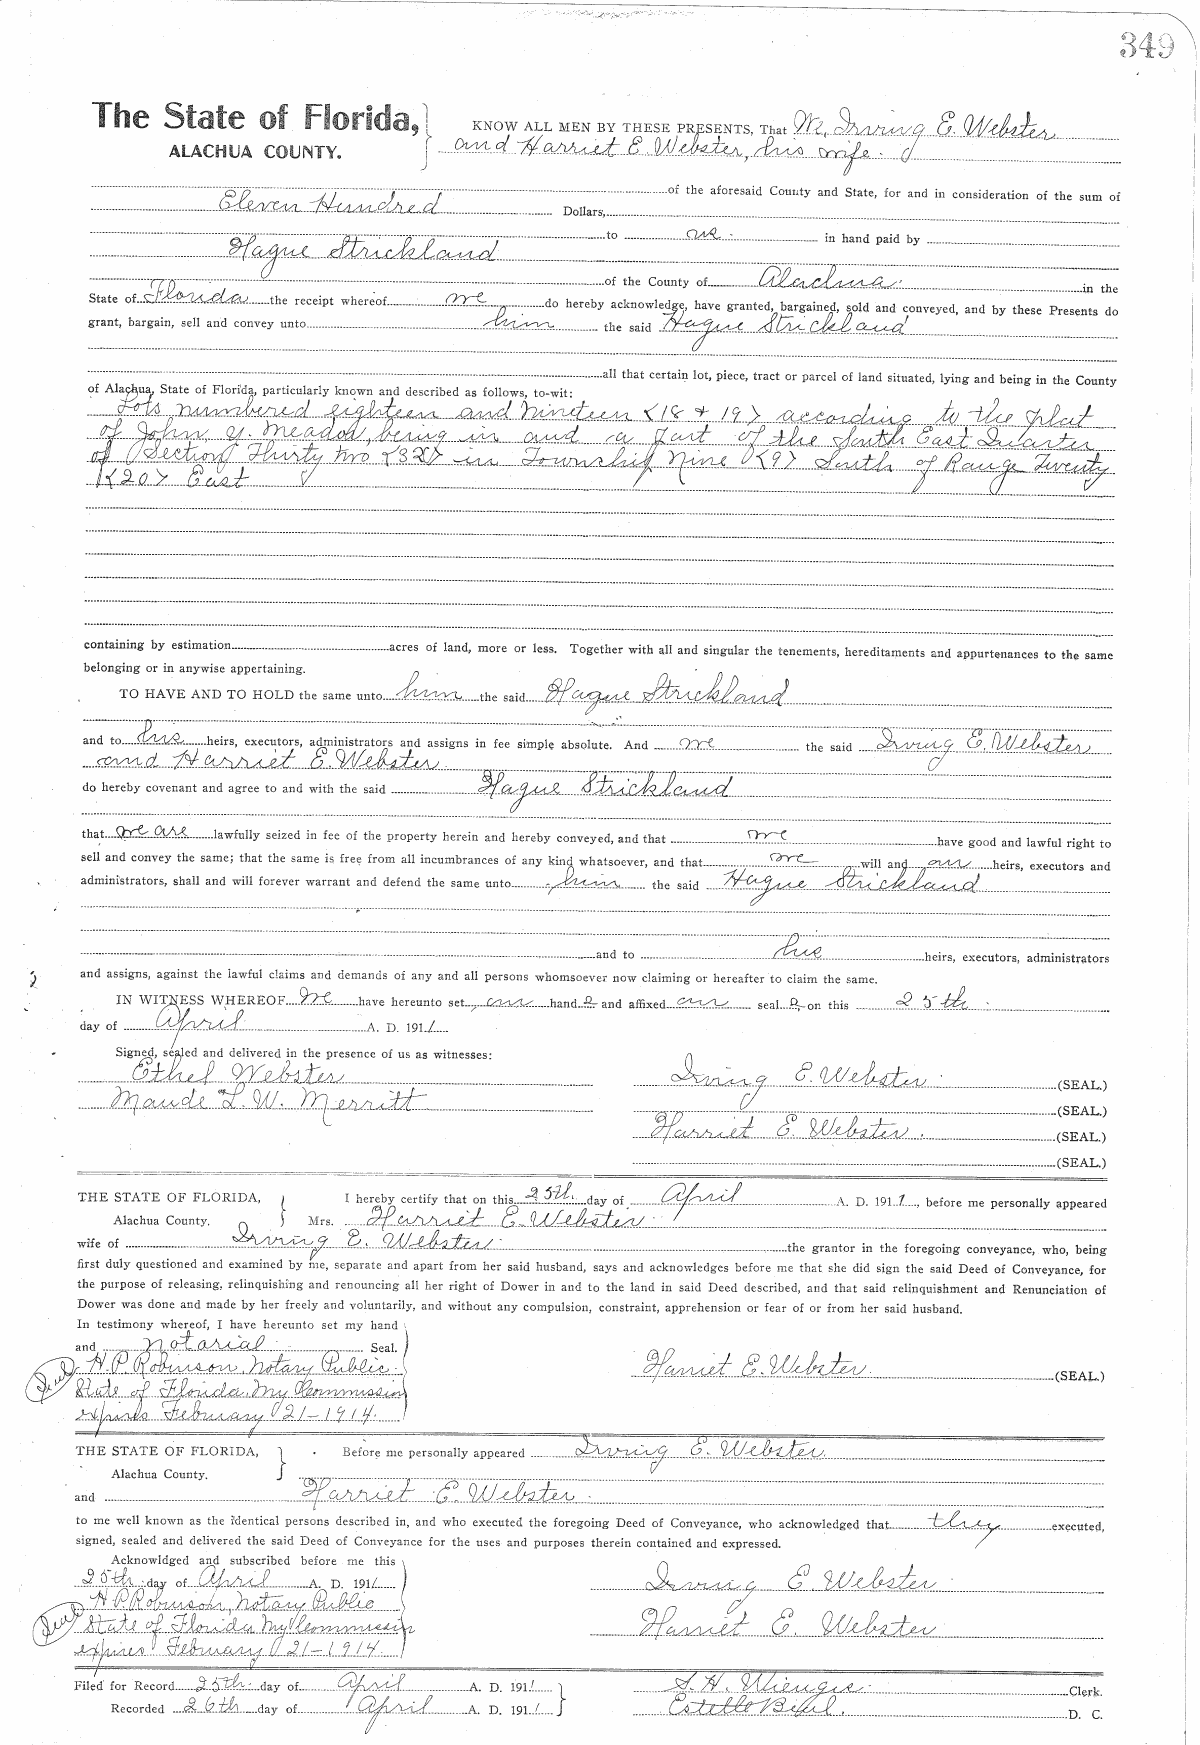 349
The State of Florida,
ALACHUA COUNTY.
KNOW ALL MEN BY THESE PRESENTS, That We, Irving E. Webster
and Harriet E. Webster, his wife.
of the aforesaid County and State, for and in consideration of the sum of
Eleven Hundred Dollars,
to us in hand paid by
Hague Strickland
of the County of Alachua in the
State of Florida the receipt whereof we do hereby acknowledge, have granted, bargained, sold and conveyed, and by these Presents do
grant, bargain, sell and convey unto him the said Hague Strickland
all that certain lot, piece, tract or parcel of land situated, lying and being in the County
of Alachua, State of Florida, particularly known and described as follows, to-wit:
Lots numbered eighteen and nineteen <18 + 19> according to the plat
of John Y. Meador, being in and a part of the South East Quarter
of Section Thirty two <32> in Township Nine <9> South of Range Twenty
<20> East
containing by estimation acres of land, more or less. Together with all and singular the tenements, hereditaments and appurtenances to the same
belonging or in anywise appertaining.
TO HAVE AND TO HOLD the same unto him the said Hague Strickland
and to his heirs, executors, administrators and assigns in fee simple absolute. And we the said Irving E. Webster
and Harriet E. Webster
do hereby covenant and agree to and with the said Hague Strickland
that we are lawfully seized in fee of the property herein and hereby conveyed, and that we have good and lawful right to
sell and convey the same; that the same is free from all incumbrances of any kind whatsoever, and that we will and our heirs, executors and
administrators, shall and will forever warrant and defend the same unto him the said Hague Strickland
and to his heirs, executors, administrators
and assigns, against the lawful claims and demands of any and all persons whomsoever now claiming or hereafter to claim the same.
IN WITNESS WHEREOF We have hereunto set our hand s and affixed our seal s on this 25th
day of April A. D. 1911
Signed, sealed and delivered in the presence of us as witnesses:
Ethel Webster Irving E. Webster (SEAL.)
Maude L. W. Merritt (SEAL.)
Harriet E. Webster. (SEAL.)
(SEAL.)
THE STATE OF FLORIDA, I hereby certify that on this 25th day of April A. D. 1911, before me personally appeared
Alachua County. Mrs. Harriet E. Webster
wife of Irving E. Webster the grantor in the foregoing conveyance, who, being
first duly questioned and examined by me, separate and apart from her said husband, says and acknowledges before me that she did sign the said Deed of Conveyance, for
the purpose of releasing, relinquishing and renouncing all her right of Dower in and to the land in said Deed described, and that said relinquishment and Renunciation of
Dower was done and made by her freely and voluntarily, and without any compulsion, constraint, apprehension or fear of or from her said husband.
In testimony whereof, I have hereunto set my hand
and notarial Seal.
Seal H. P. Robinson, Notary Public Harriet E. Webster (SEAL.)
State of Florida. My Commission
expires February 21-1914.
THE STATE OF FLORIDA, Before me personally appeared Irving E. Webster
Alachua County.
and Harriet E. Webster
to me well known as the identical persons described in, and who executed the foregoing Deed of Conveyance, who acknowledged that they executed,
signed, sealed and delivered the said Deed of Conveyance for the uses and purposes therein contained and expressed.
Acknowldged and subscribed before me this
25th day of April A. D. 1911 Irving E. Webster
Seal H. P. Robinson, Notary Public
State of Florida My Commission Harriet E. Webster
expires February 21-1914
Filed for Record 25th day of April A. D. 1911 S. H. Wienges Clerk.
Recorded 26th day of April A. D. 1911 Estelle D. C.